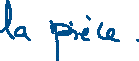 la pièce.